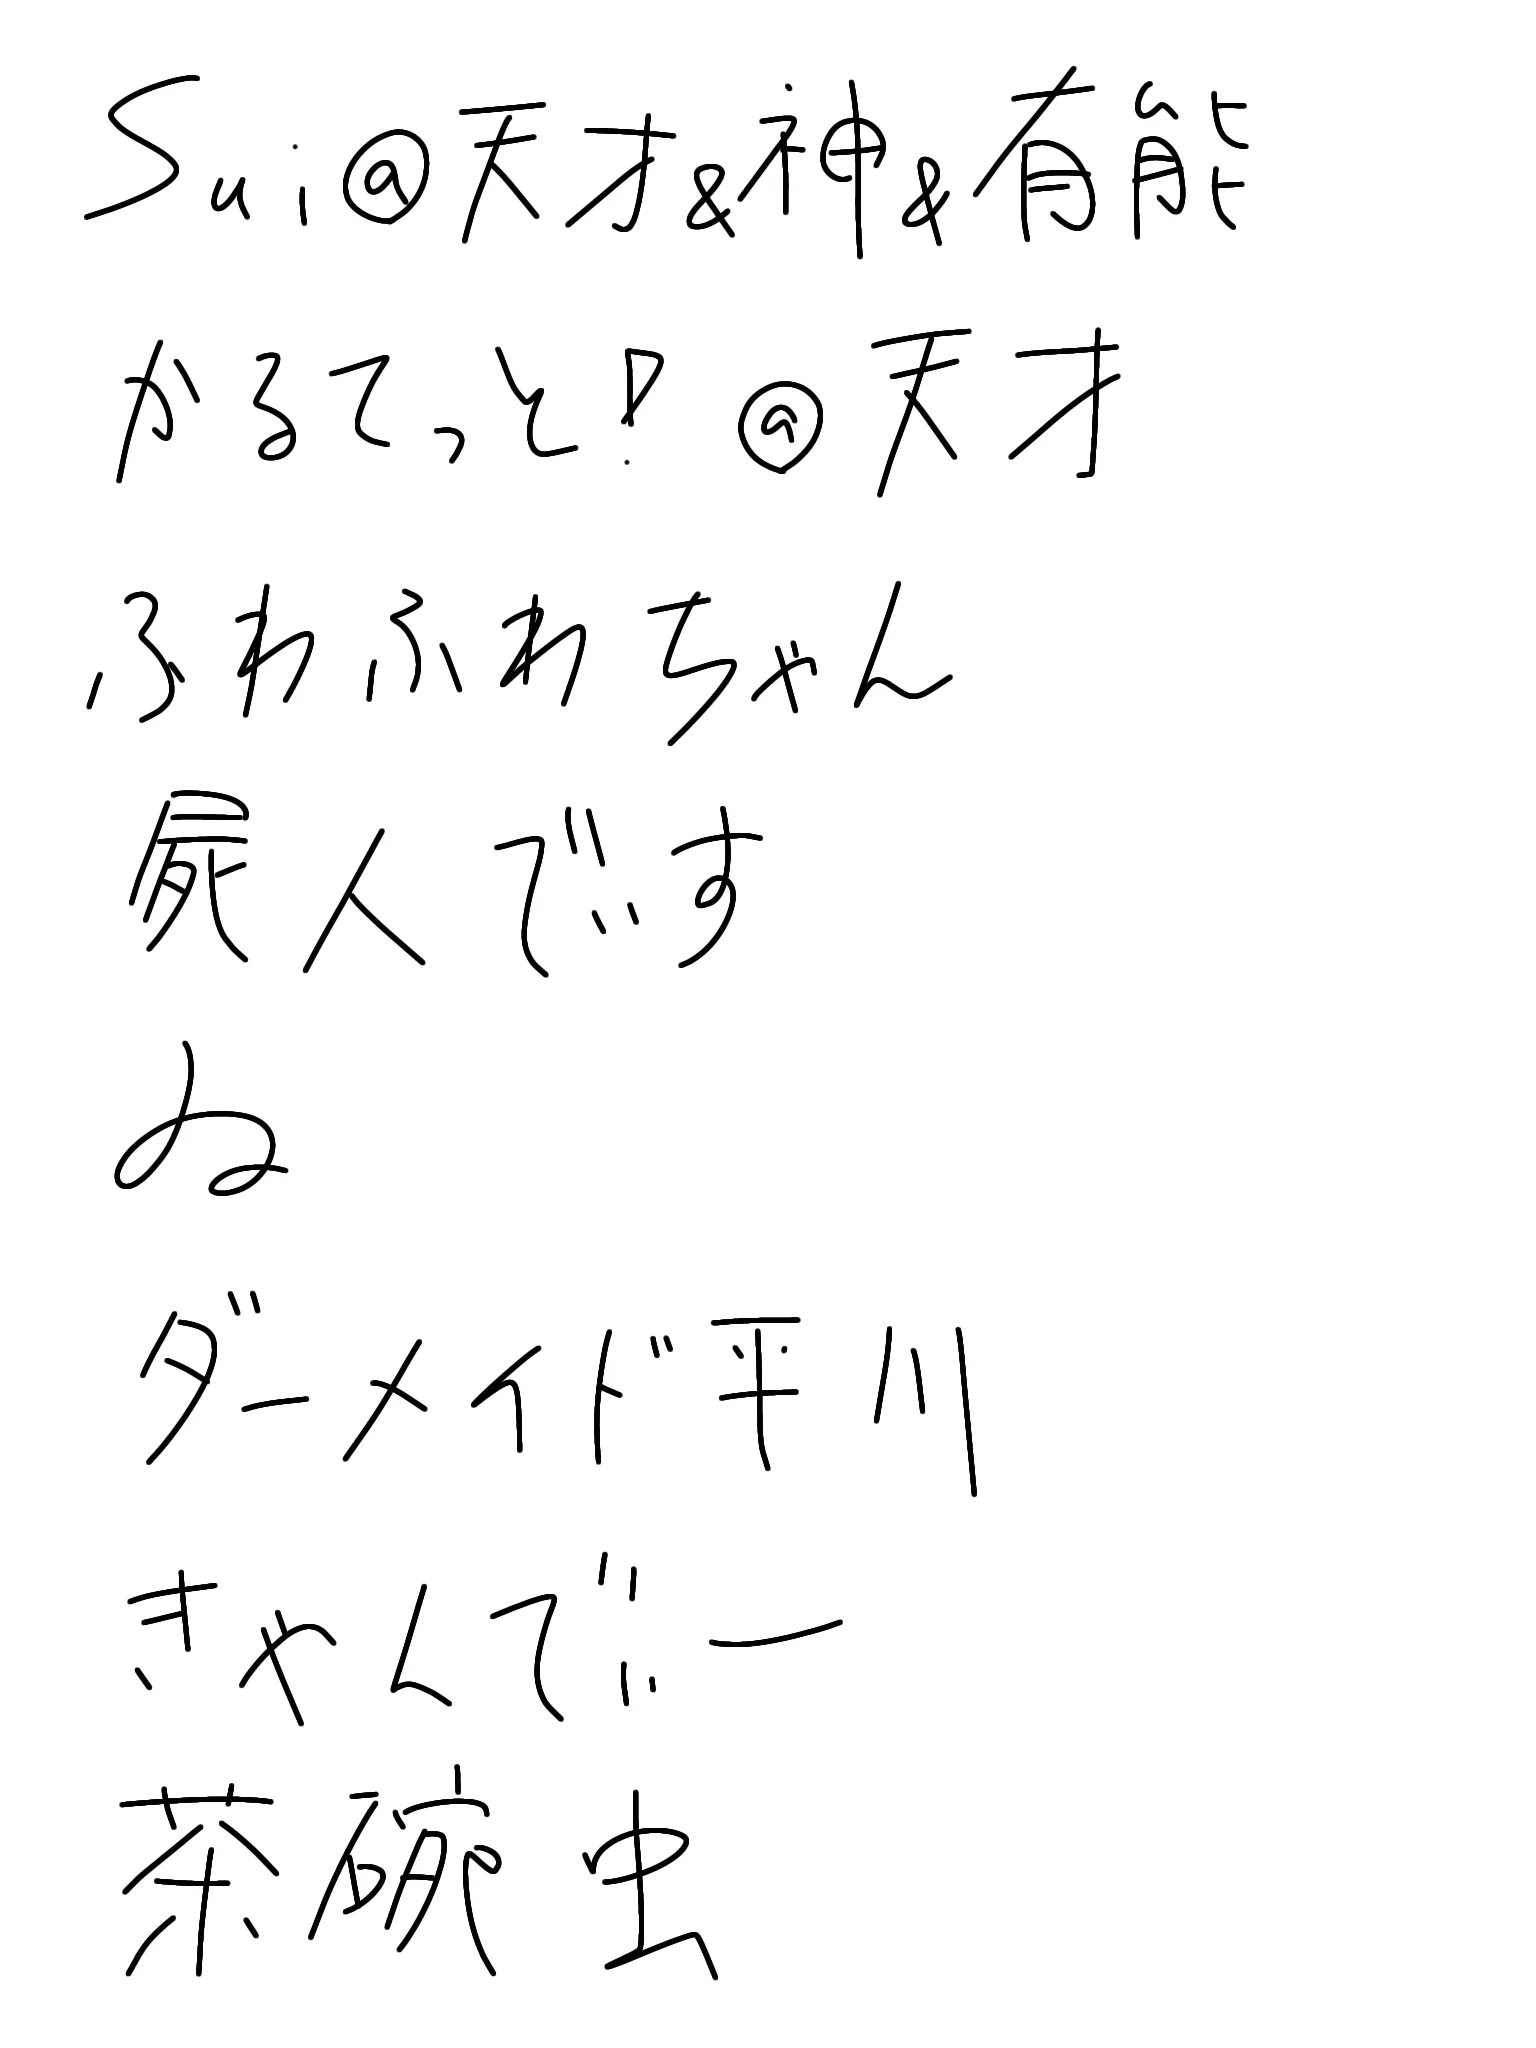 Sui@天才&神&有能
かるてっと!@天才
ふわふわちゃん
屍人です
ぬ
ダーメイド平川
きゃんでぃー
茶碗虫